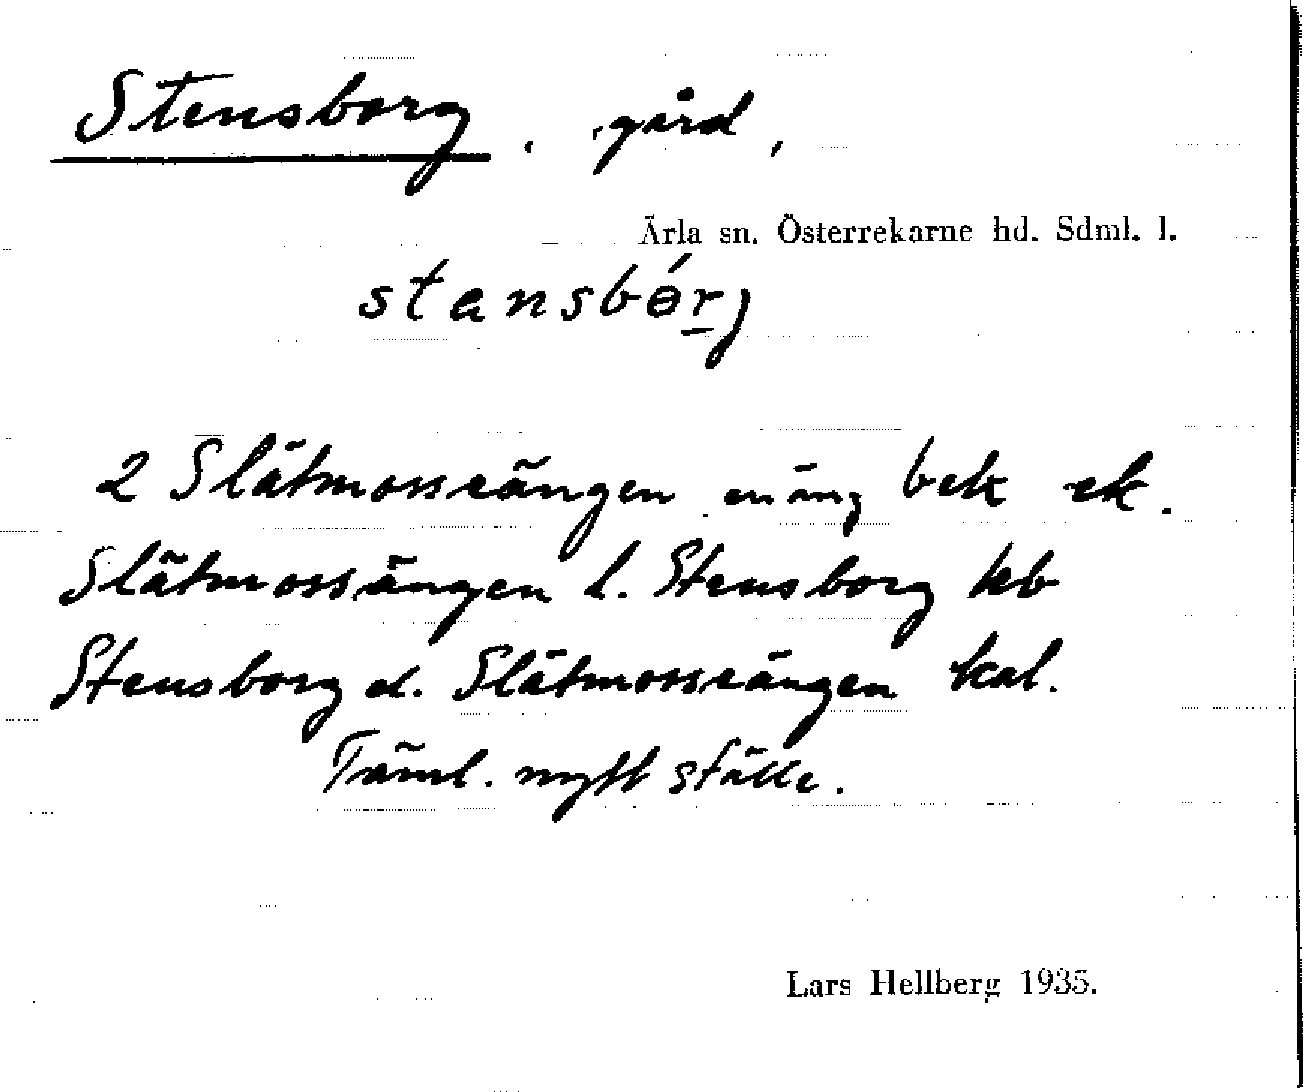 Stensborg, gård,
Ärla sn. Österrekarne hd. Sdml. l.
stansbɵ́rj
2 Slätmosseängen enäng bek ek.
Slätmossängen l. Stensborg hb
Stensborg d. Slätmosseängen kal.
Täml. nytt ställe.
Lars Hellberg 1935.